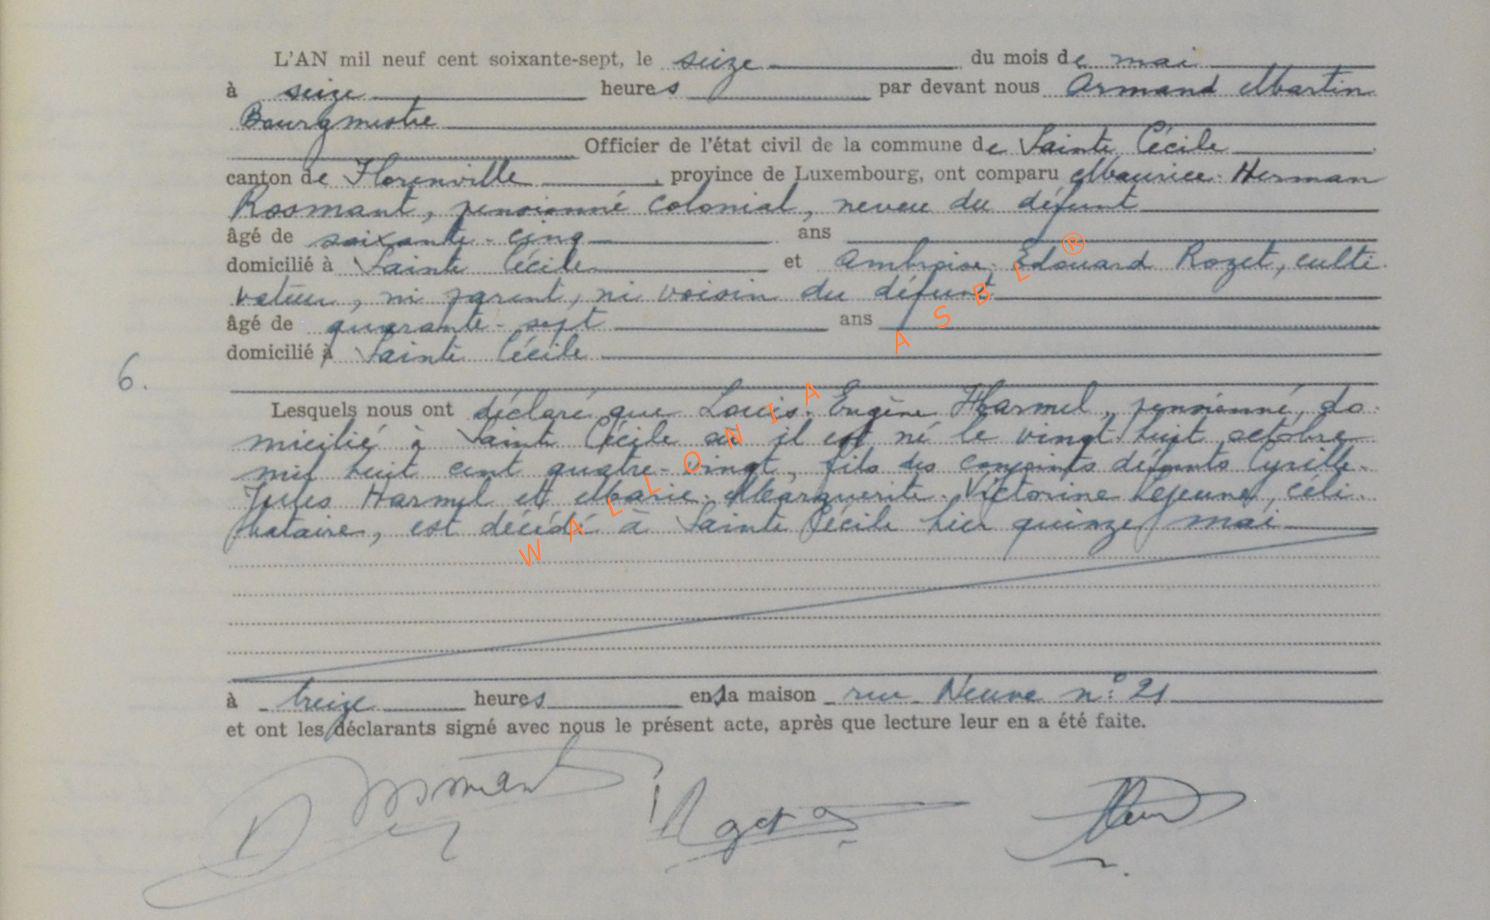 L'AN mil neuf cent soixante-sept, le seize du mois de mai
à seize heures par devant nous Armand Martin
Bourgmestre
Officier de l'état civil de la commune de Sainte Cécile
canton de Florenville, province de Luxembourg, ont comparu Maurice-Herman
Rosmant, pensionné colonial, neveu du défunt
âgé de soixante-cinq ans
domicilié à Sainte Cécile et Ambroise-Edouard Rozet, culti
vateur, ni parent, ni voisin du défunt
âgé de quarante-sept ans
domicilié à Sainte Cécile
6.
Lesquels nous ont déclaré que Louis-Eugène Harmel, pensionné, do-
micilié à Sainte Cécile où il est né le vingt huit octobre
mil huit cent quatre-vingt, fils des conjoints défunts Cyrille-
Jules Harmel et Marie-Marguerite-Victorine Lejeune, céli-
bataire, est décédé à Sainte Cécile hier quinze mai
à treize heures en la maison rue Neuve n° 21
et ont les déclarants signé avec nous le présent acte, après que lecture leur en a été faite.
WALLONIA ASBL ®